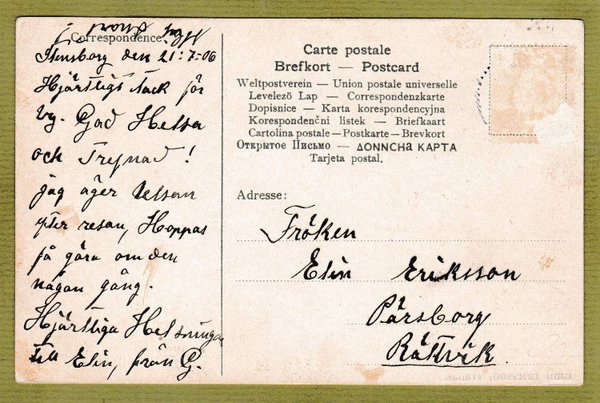 Correspondence.
den 21/7-06
Hjärtligt tack för
bg. God Helsa
och Trefnad!
jag äger helsan
efter resan, Hoppas
få göra om den
någon gång.
Hjärtliga Helsninga
till Elin, från G.
Carte postale
Brefkort — Postcard
Weltpostverein — Union postale universelle
Levelező Lap — Correspondenzkarte
Dopisnice — Karta korespondencyjna
Korespondenční listek — Briefkaart
Cartolina postale — Postkarte — Brevkort
Открытое Письмо — ΔΟΝΝCHа ΚΑΡΤΑ
Tarjeta postal.
Adresse:
Fröken
Elin Eriksson
Pärsborg
Rättvik.